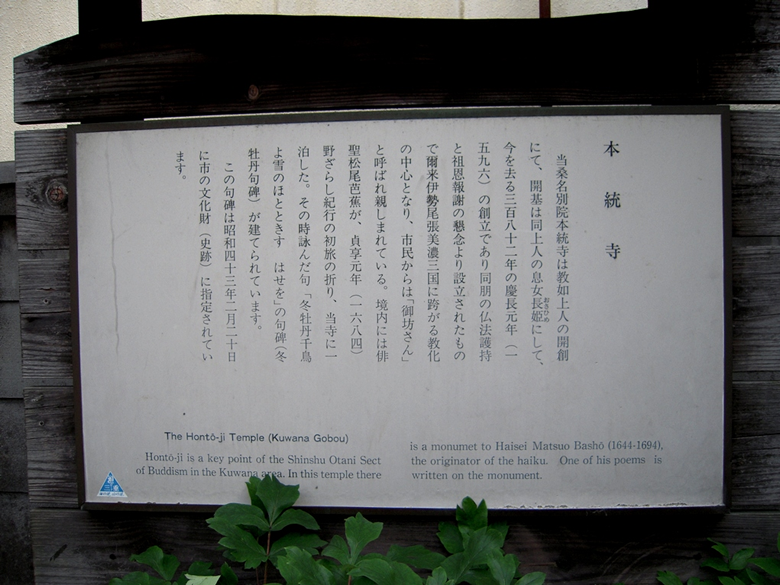 本統寺
当桑名別院本統寺は教如上人の開創
にて、開基は同上人の息女長姫にして、
おさひめ
今を去る三百八十二年の慶長元年（一
五九六）の創立であり同朋の仏法護持
と祖恩報謝の懇念より設立されたもの
で爾来伊勢尾張美濃三国に跨がる教化
の中心となり、市民からは「御坊さん」
と呼ばれ親しまれている。境内には俳
聖松尾芭蕉が、貞享元年（一六八四）
野ざらし紀行の初旅の折り、当寺に一
泊した。その時詠んだ句「冬牡丹千鳥
よ雪のほとときす　はせを」の句碑（冬
牡丹句碑）が建てられています。
この句碑は昭和四十三年二月二十日
に市の文化財（史跡）に指定されてい
ます。
The Hontō-ji Temple (Kuwana Gobou)
Hontō-ji is a key point of the Shinshu Otani Sect
of Buddism in the Kuwana area. In this temple there
is a monumet to Haisei Matsuo Bashō (1644-1694),
the originator of the haiku. One of his poems is
written on the monument.